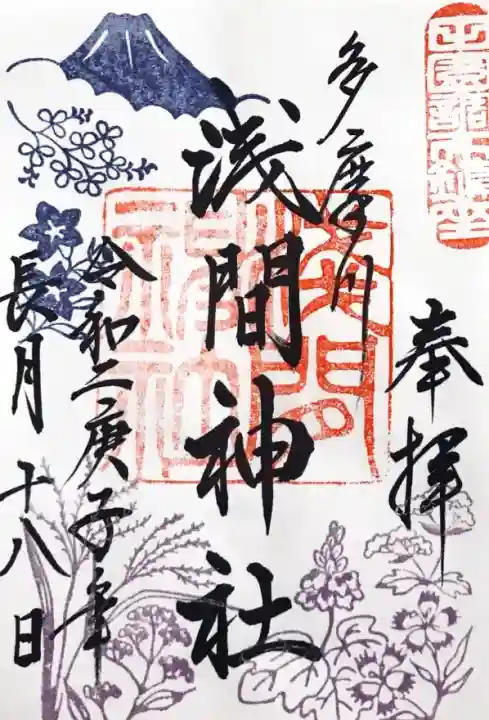 奉拝
多摩川
浅間神社
令和二庚子年
長月十八日
浅間神社